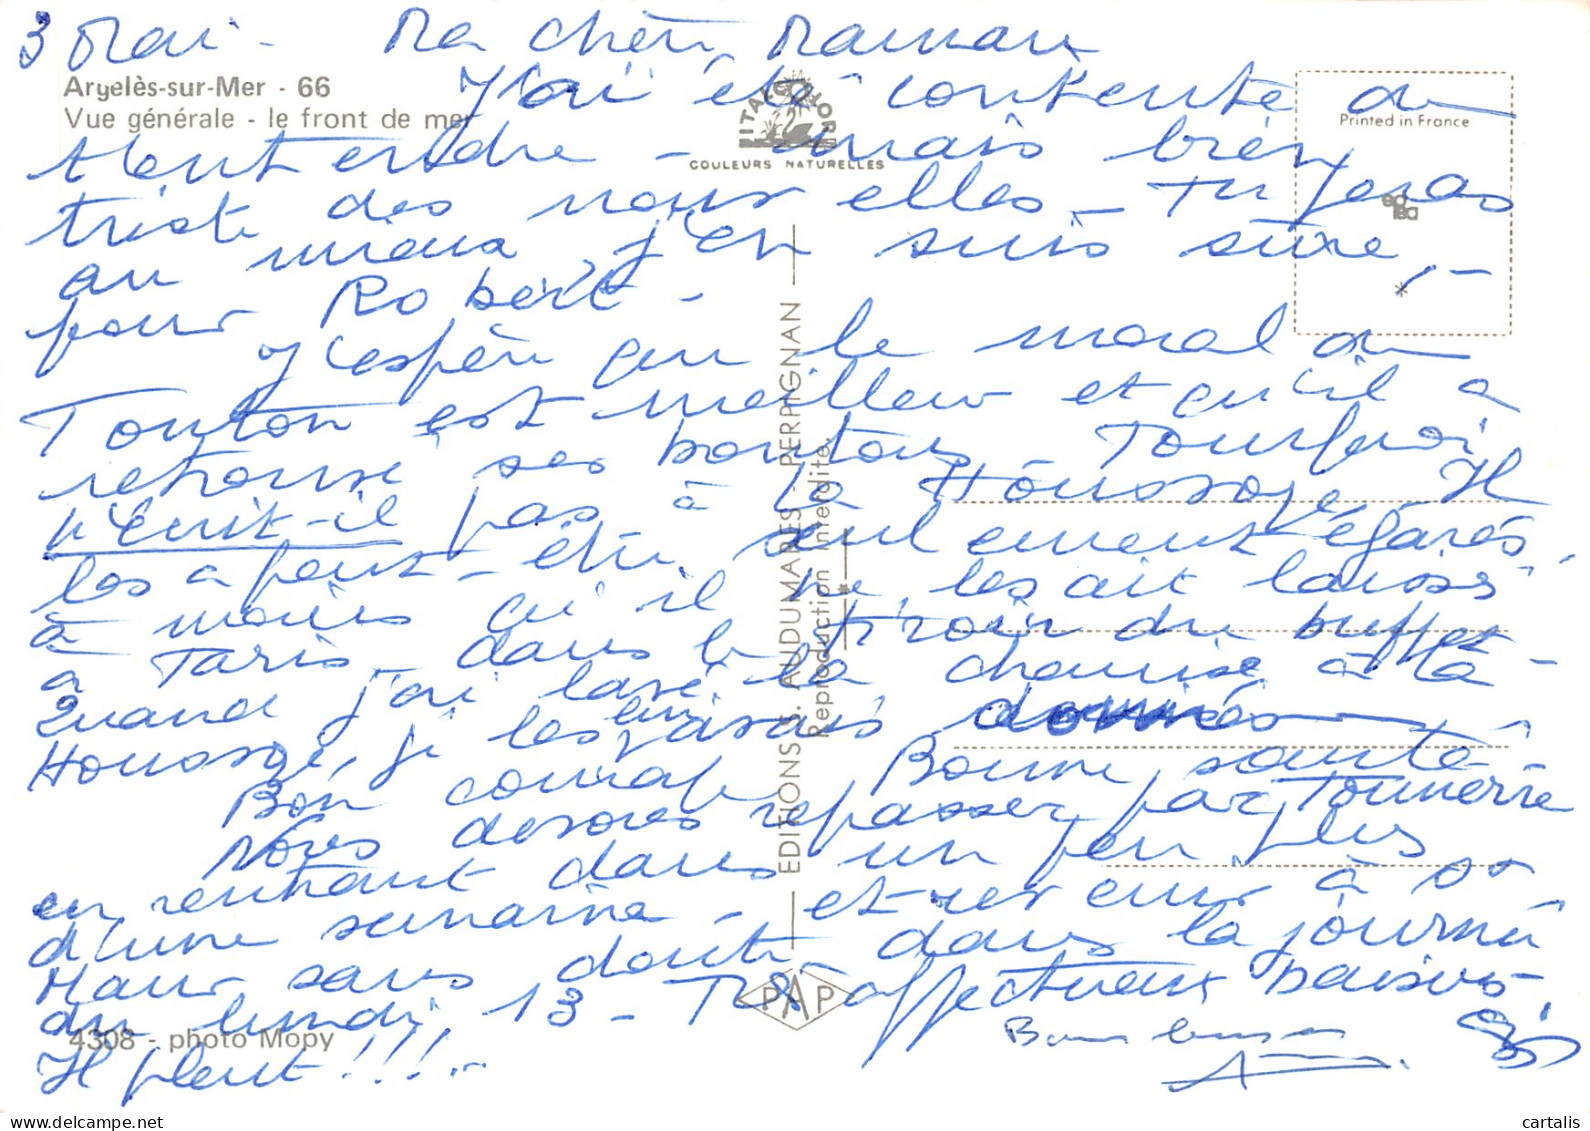 3 Mai - Ma chère Maman
Argelès-sur-Mer - 66
Vue générale - le front de mer
ITALCOLOR
COULEURS NATURELLES
Printed in France
J'ai été contente de
t'entendre - mais bien
triste des nouvelles - Tu feras
au mieux j'en suis sûre, -
pour Robert -
J'espère que le moral de
Tonton est meilleur et qu'il a
retrouvé ses boutons - Pourquoi
n'écrit-il pas à la Houssaye. Il
les a peut-être seulement égarés,
à moins qu'il ne les ait laissés
à Paris - dans le tiroir du buffet -
Quand j'ai lavé la chemise à la
Houssaye, je les lui avais donnés
Bon courage Bonne santé
Nous devons repasser par Tonnerre
en rentrant dans un peu plus
d'une semaine - et retour à St
Maur sans doute dans la journée
du lundi, 13 - Très affectueux baisers.
Il pleut!!!..
Bons baisers
EDITIONS S. AUDUMARES PERPIGNAN
Reproduction interdite
PAP
4308 - photo Mopy
www.cartalis.com
cartalis